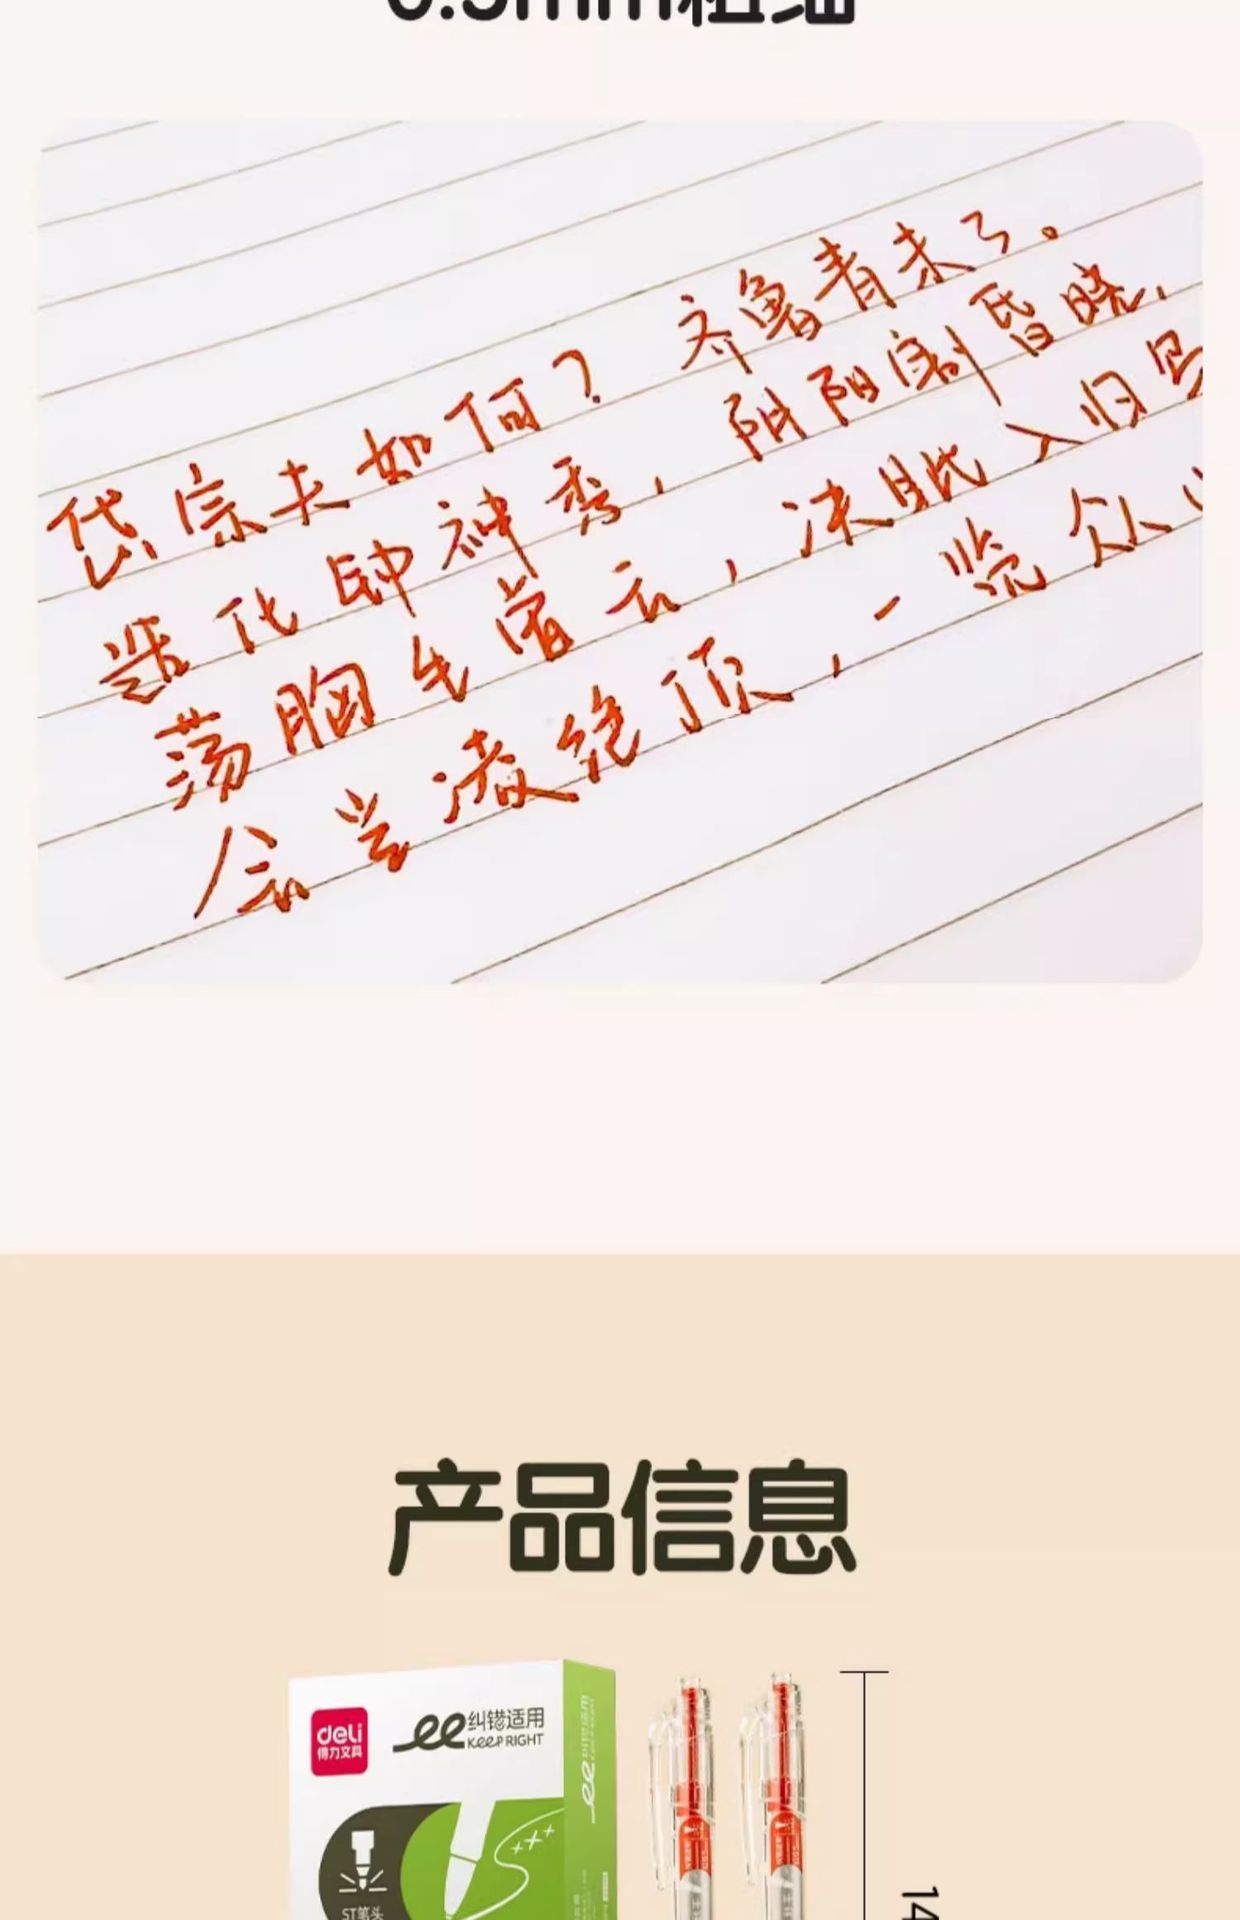 0.5mm粗细
岱宗夫如何？ 齐鲁青未了。
造化钟神秀，阴阳割昏晓，
荡胸生曾云，决眦入归鸟
会当凌绝顶，一览众山
产品信息
deli
得力文具
纠错适用
KEEP RIGHT
ST笔头
14